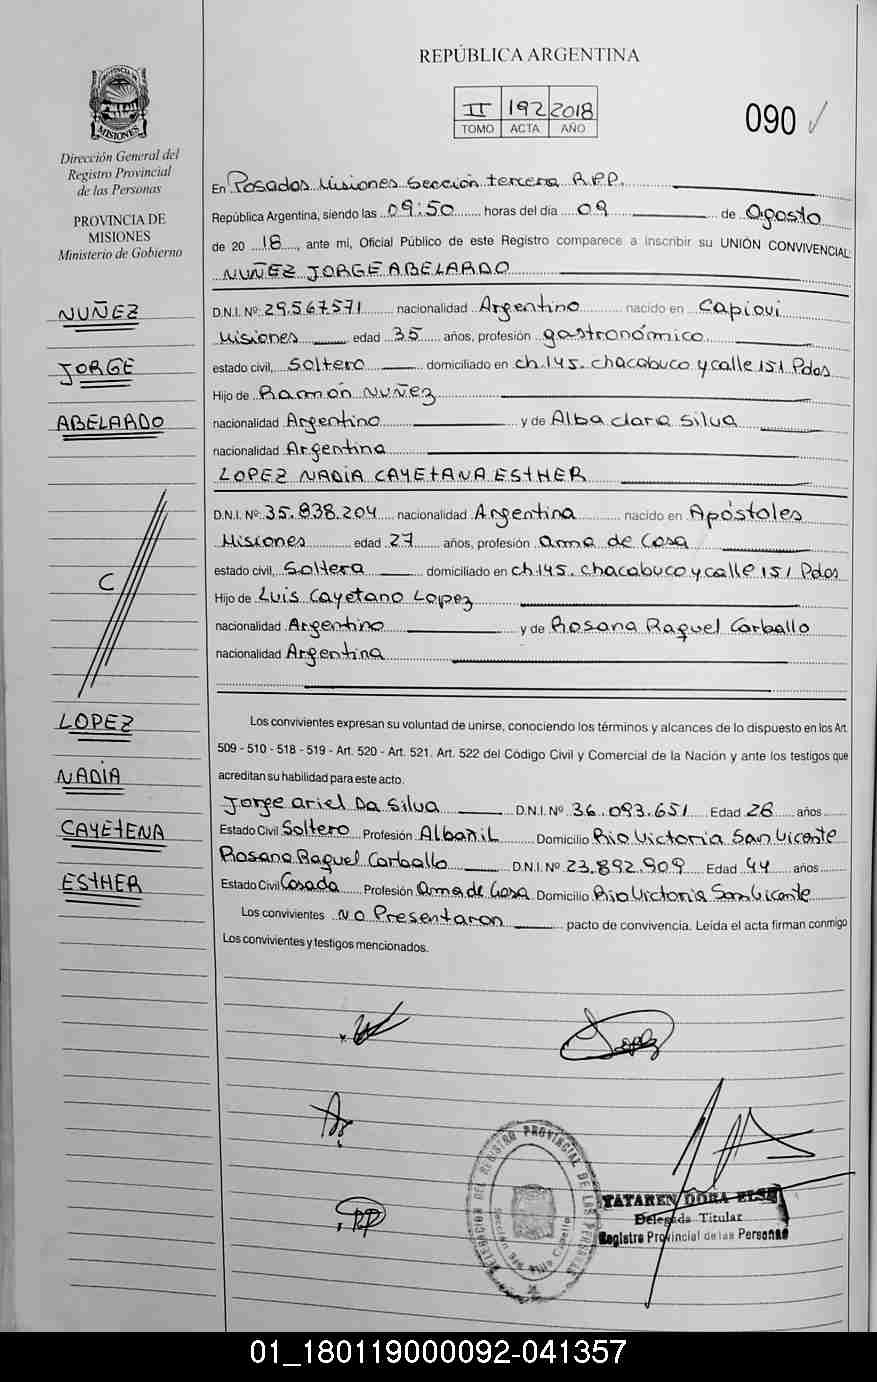 REPÚBLICA ARGENTINA
II 192 2018
TOMO ACTA AÑO
090
PROVINCIA DE
MISIONES
Dirección General del
Registro Provincial
de las Personas
PROVINCIA DE
MISIONES
Ministerio de Gobierno
NUÑEZ
JORGE
ABELARDO
C
LOPEZ
NADIA
CAYETENA
ESTHER
En Posadas Misiones Sección tercera R.P.P.
República Argentina, siendo las 09:50 horas del día 09 de Agosto
de 20 18, ante mi, Oficial Público de este Registro comparece a inscribir su UNIÓN CONVIVENCIAL:
NUÑEZ JORGE ABELARDO
D.N.I. Nº 29.567.571 nacionalidad Argentino nacido en Capiovi
Misiones edad 35 años, profesión gastronómico
estado civil, Soltero domiciliado en ch.145. chacabuco y calle 151 Pdas
Hijo de Ramón Nuñez
nacionalidad Argentino y de Alba clara Silva
nacionalidad Argentina
LOPEZ NADIA CAYETANA ESTHER
D.N.I. Nº 35.838.204 nacionalidad Argentina nacido en Apóstoles
Misiones edad 27 años, profesión ama de casa
estado civil, Soltera domiciliado en ch.145. chacabuco y calle 151 Pdas
Hijo de Luis Cayetano Lopez
nacionalidad Argentino y de Rosana Raquel Carballo
nacionalidad Argentina
Los convivientes expresan su voluntad de unirse, conociendo los términos y alcances de lo dispuesto en los Art.
509 - 510 - 518 - 519 - Art. 520 - Art. 521. Art. 522 del Código Civil y Comercial de la Nación y ante los testigos que
acreditan su habilidad para este acto.
Jorge ariel Da Silva D.N.I. Nº 36.093.651 Edad 26 años
Estado Civil Soltero Profesión Albañil Domicilio Rio Victoria San Vicente
Rosana Raquel Carballo D.N.I. Nº 23.892.909 Edad 44 años
Estado Civil Casada Profesión Ama de Casa Domicilio Rio Victoria San Vicente
Los convivientes NO Presentaron pacto de convivencia. Leída el acta firman conmigo
Los convivientes y testigos mencionados.
Lopez
DELEGACION DEL REGISTRO PROVINCIAL DE LAS PERSONAS
TATAREN DORA ELSA
Delegada Titular
Registro Provincial de las Personas
01_180119000092-041357